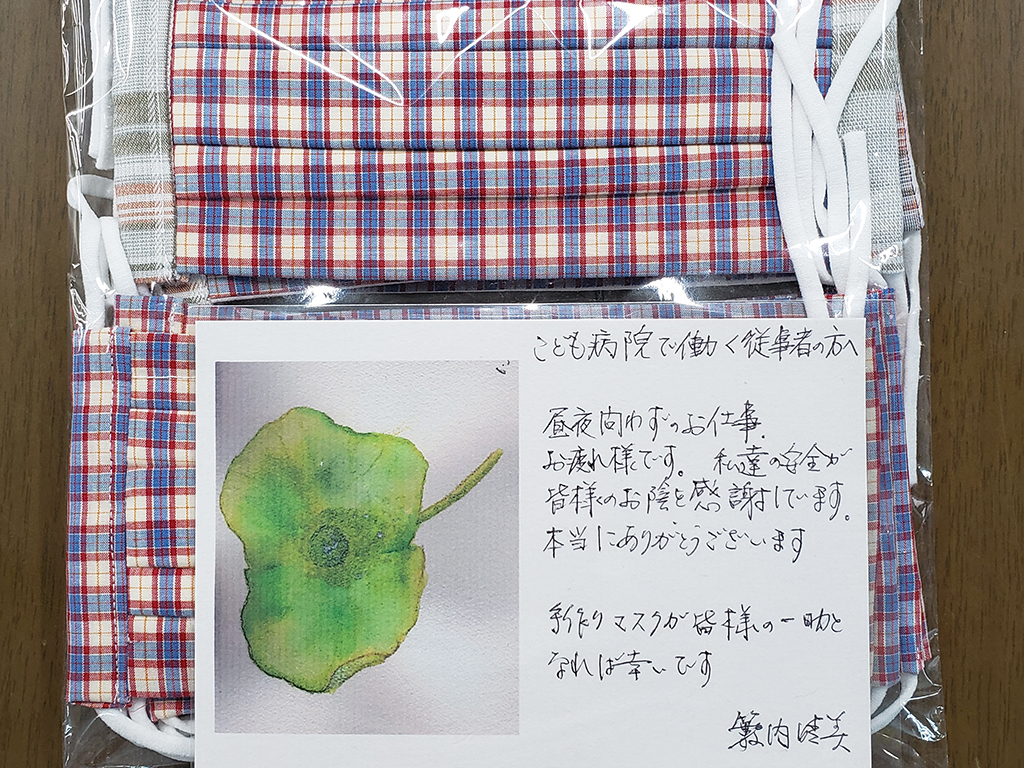 こども病院で働く従事者の方へ
昼夜問わずのお仕事
お疲れ様です。私達の安全が
皆様のお陰と感謝しています。
本当にありがとうございます
手作りマスクが皆様の一助と
なれば幸いです
籔内清美